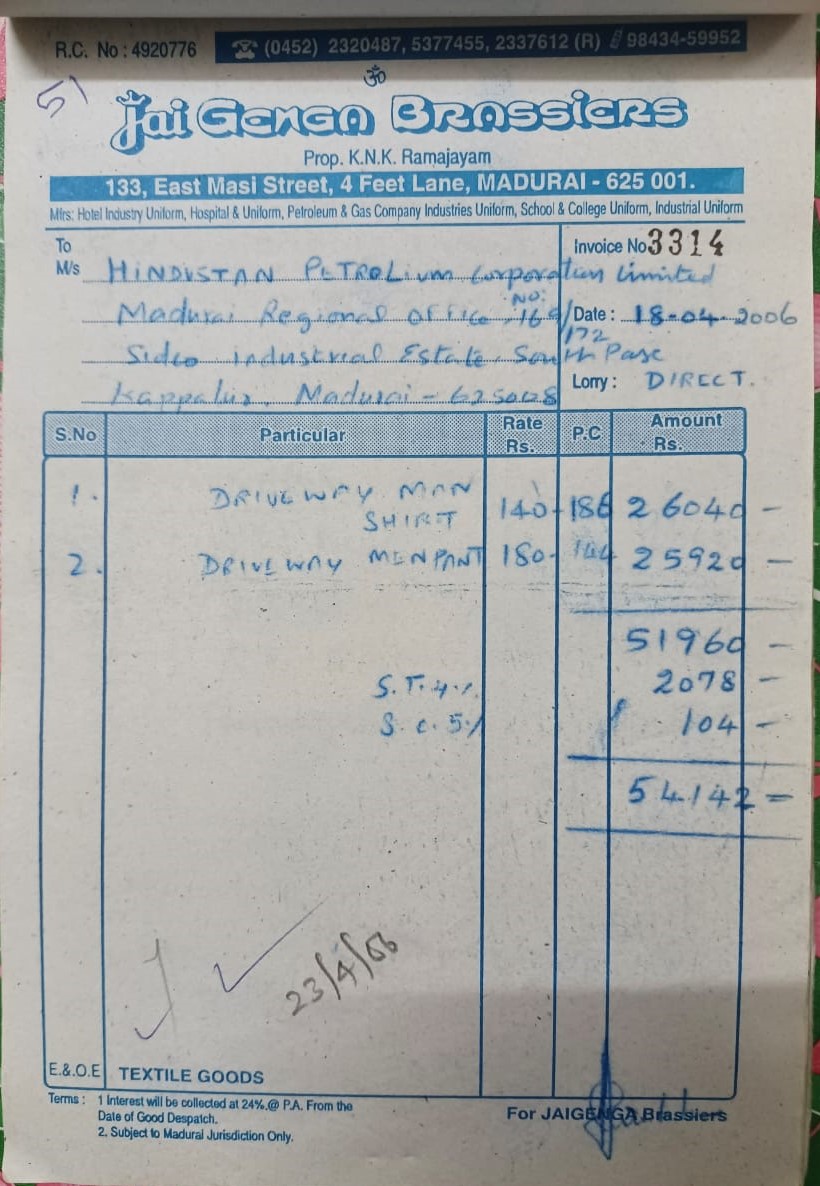 R.C. No : 4920776 (0452) 2320487, 5377455, 2337612 (R) 98434-59952
51
ॐ
Jai Genga Brassiers
Prop. K.N.K. Ramajayam
133, East Masi Street, 4 Feet Lane, MADURAI - 625 001.
Mfrs: Hotel Industry Uniform, Hospital & Uniform, Petroleum & Gas Company Industries Uniform, School & College Uniform, Industrial Uniform
To Invoice No 3314
M/s HINDUSTAN PETROLium Corporation Limited
Madurai Regional Office, NO: 169/172 Date : 18-04-2006
Sidco industrial Estate, South Pase
Kappalur, Madurai - 625008 Lorry : DIRECT.
S.No Particular Rate Rs. P.C Amount Rs.
1. DRIVEWAY MAN SHIRT 140- 186 26040 -
2. DRIVEWAY MENPANT 180- 144 25920 -
51960 -
S.T. 4% 2078 -
S.C. 5% 104 -
54142 =
23/4/06
E.&.O.E TEXTILE GOODS
Terms : 1 Interest will be collected at 24%.@ P.A. From the
Date of Good Despatch.
2. Subject to Madurai Jurisdiction Only.
For JAIGENGA Brassiers